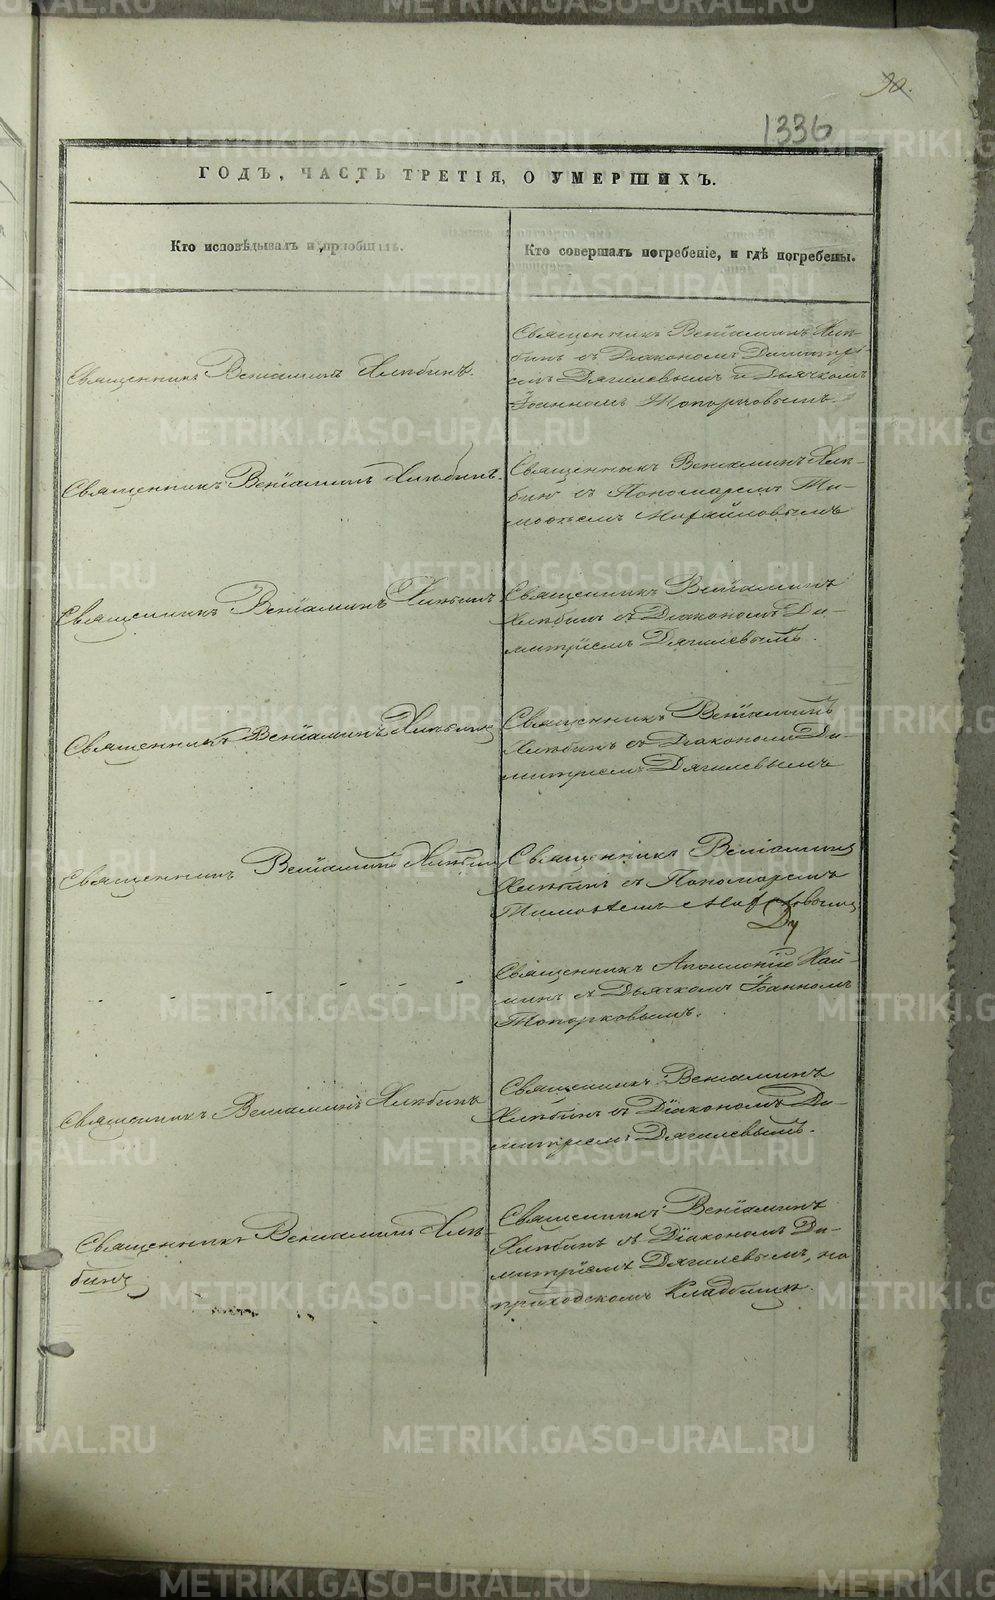 90.
1336
ГОДЪ, ЧАСТЬ ТРЕТІЯ, О УМЕРШИХЪ.
Кто исповѣдывалъ и пріобщалъ.
Кто совершалъ погребеніе, и гдѣ погребены.
Священникъ Веніаминъ Хлѣбинъ.
Священникъ Веніаминъ Хлѣ-
бинъ съ Діакономъ Димитрі
емъ Дягилевымъ и Дьячкомъ
Іоанномъ Топорковымъ.
Священникъ Веніаминъ Хлѣбинъ.
Священникъ Веніаминъ Хлѣ-
бинъ съ Пономаремъ Ти-
моѳеемъ Михайловымъ
Священникъ Веніаминъ Хлѣбинъ
Священникъ Веніаминъ
Хлѣбинъ съ Діакономъ Ди-
митріемъ Дягилевымъ.
Священникъ Веніаминъ Хлѣбинъ
Священникъ Веніаминъ
Хлѣбинъ съ Діакономъ Ди-
митріемъ Дягилевымъ
Священникъ Веніаминъ Хлѣбинъ
Священникъ Веніаминъ
Хлѣбинъ съ Пономаремъ
Тимоѳеемъ Михайловымъ
Священникъ Хай-
минъ съ Дьячкомъ Іоанномъ
Топорковымъ.
Священникъ Веніаминъ Хлѣбинъ
Священникъ Веніаминъ
Хлѣбинъ съ Діакономъ Ди-
митріемъ Дягилевымъ.
Священникъ Веніаминъ Хлѣ-
бинъ
Священникъ Веніаминъ
Хлѣбинъ съ Діакономъ Ди-
митріемъ Дягилевымъ, на
приходскомъ Кладбищѣ.
METRIKI.GASO-URAL.RU